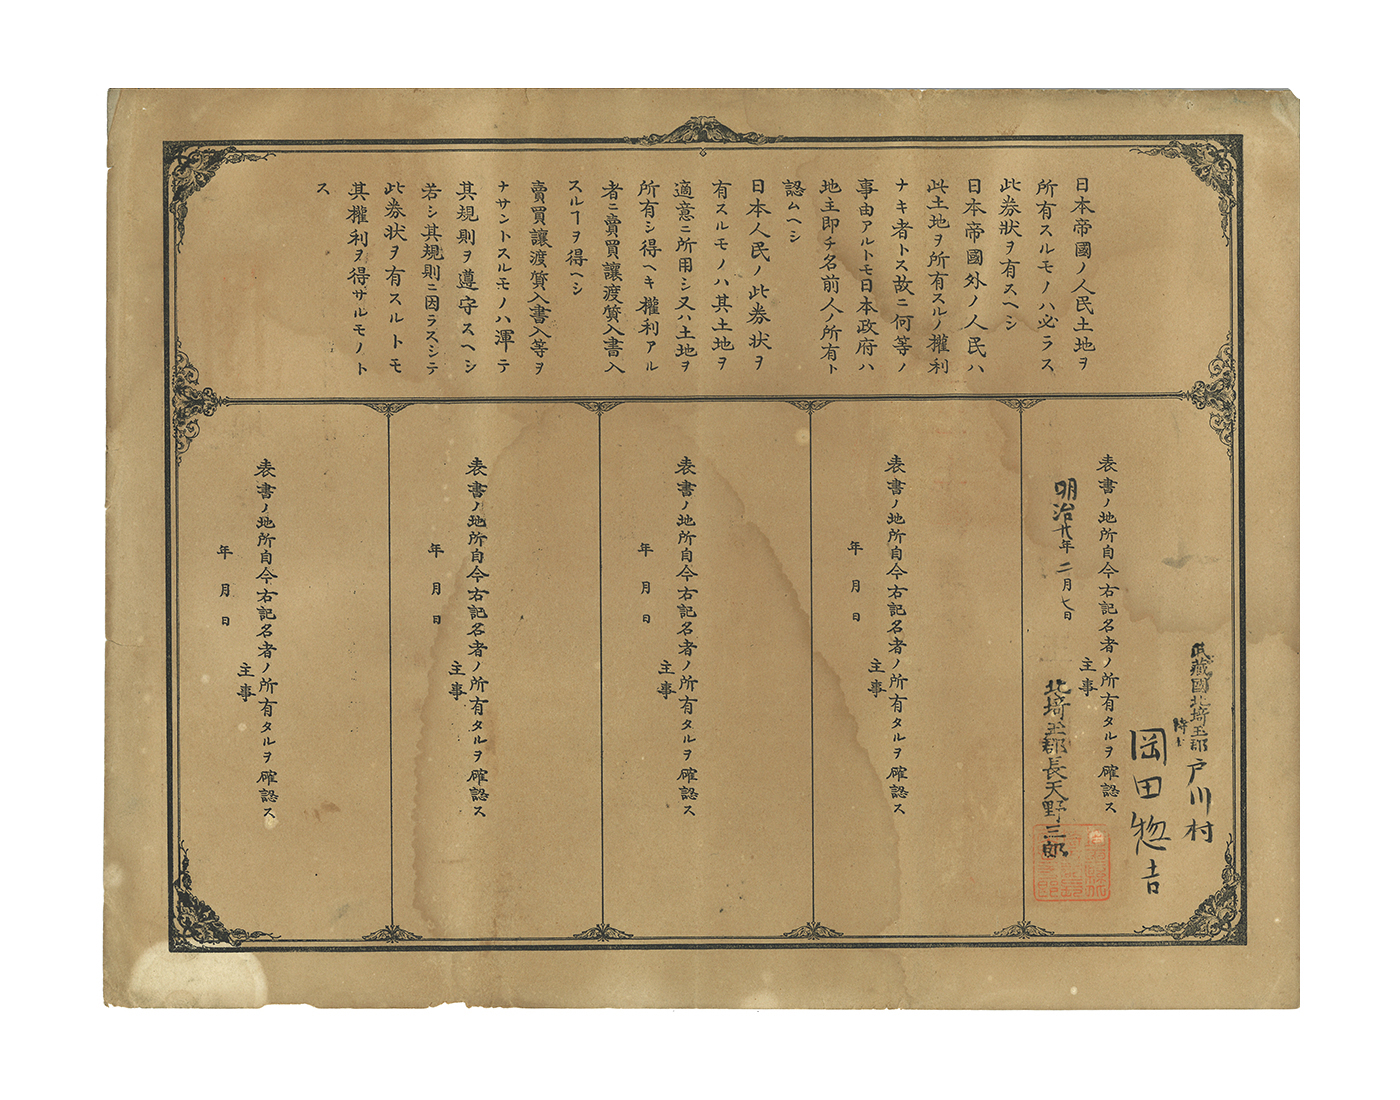 日本帝國ノ人民土地ヲ
所有スルモノハ必ラス
此券状ヲ有スヘシ
日本帝國外ノ人民ハ
此土地ヲ所有スルノ權利
ナキ者トス故ニ何等ノ
事由アルトモ日本政府ハ
地主即チ名前人ノ所有ト
認ムヘシ
日本人民ノ此券状ヲ
有スルモノハ其土地ヲ
適意ニ所用シ又ハ土地ヲ
所有シ得ヘキ權利アル
者ニ賣買讓渡質入書入
スルヿヲ得ヘシ
賣買讓渡質入書入等ヲ
ナサントスルモノハ渾テ
其規則ヲ遵守スヘシ
若シ其規則ニ因ラスシテ
此券状ヲ有スルトモ
其權利ヲ得サルモノト
ス
武藏國北埼玉郡戸川村
岡田惣吉
表書ノ地所自今右記名者ノ所有タルヲ確認ス
主事
明治廿年二月七日
北埼玉郡長天野三郎
表書ノ地所自今右記名者ノ所有タルヲ確認ス
主事
年月日
表書ノ地所自今右記名者ノ所有タルヲ確認ス
主事
年月日
表書ノ地所自今右記名者ノ所有タルヲ確認ス
主事
年月日
表書ノ地所自今右記名者ノ所有タルヲ確認ス
主事
年月日